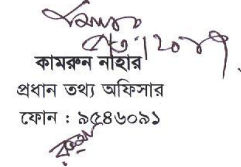 কামরুন নাহার
প্রধান তথ্য অফিসার
ফোন : ৯৫৪৬০৯১